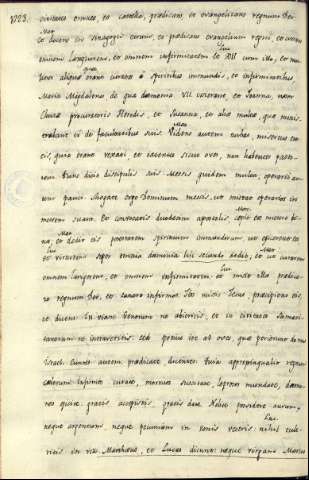 civitates omnes, et castella, prædicans et evangelizans regnum Dei
Mar
et docens in Sinagogis eorum, et prædicans evangelium regni, et curans
omnem languorem, et omnem infirmitatem
Luc
et XII cum illo, et mu-
lieres aliquæ quæ erant curatæ a spiritibus immundis, et infirmitatibus
Maria Magdalena de qua dæmonia VII exierant, et Joanna, uxor
Chusæ procuratoris Herodis, et Susanna, et aliæ multæ, quæ minis-
trabant ei de facultatibus suis
Videns autem turbas, misertus est
eis, quia erant vexati, et iacentes sicut oves, non habentes pasto-
rem tunc dixit discipulis suis Messis quidem multa, operarii au-
tem pauci. Rogate ergo Dominum messis, ut mittat operarios in
messem suam. et convocatis duodecim apostolis
et dedit eis potestatem spirituum immundorum, ut eijcerent eos
Luc
et virtutem super omnia dæmonia
et ut curarent
omnem languorem, et omnem infirmitatem
Luc
et misit illos prædica-
re regnum Dei, et sanare infirmos
Hos misit Jesus præcipiens eis,
et dicens In viam Gentium ne abieritis, et in civitates Samari-
tanorum ne intraveritis sed potius ite ad oves, quæ perierunt domus
Israel. Euntes autem prædicate, dicentes: Quia appropinquabit regnum
cælorum infirmos curate, mortuos suscitate, leprosos mundate, dæmo-
nes ejicite: gratis accepistis, gratis date Nolite possidere aurum,
neque argentum, neque pecuniam in zonis vestris: nihil tule-
Luc
ritis in via. Matthæus, et Lucas dicunt: neque virgam Marcus